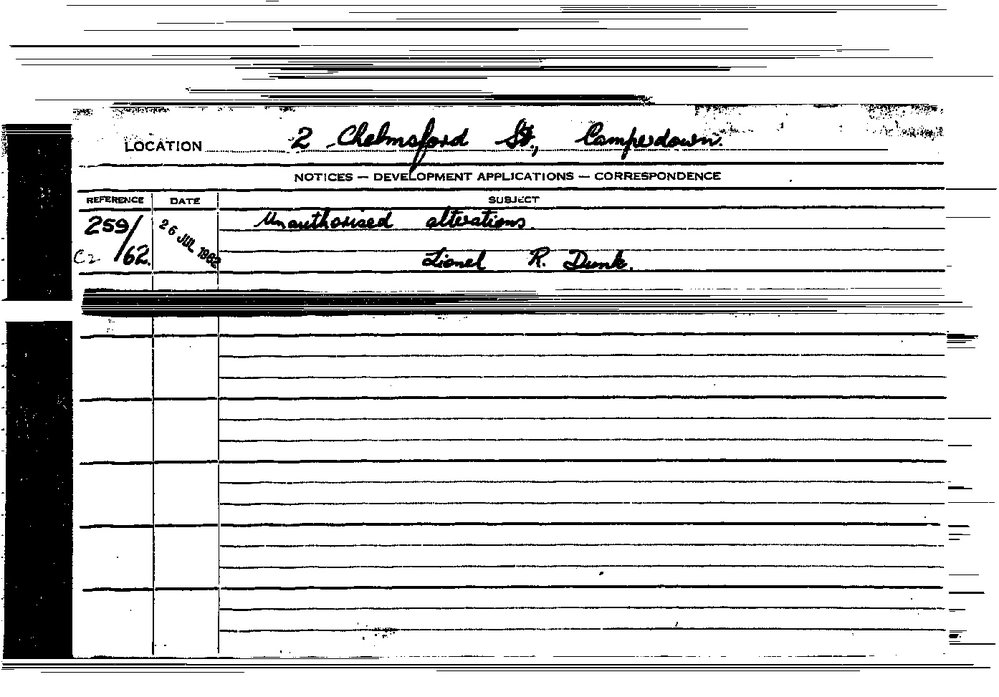 LOCATION 2 Chelmsford St., Camperdown.
NOTICES — DEVELOPMENT APPLICATIONS — CORRESPONDENCE
REFERENCE DATE SUBJECT
259/ 26 JUL 1962 Unauthorised alterations.
C2 /62. Lionel R. Dunk.